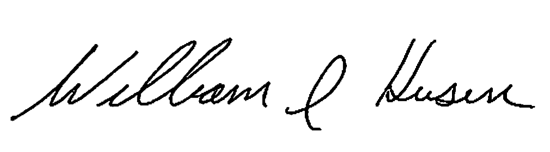 William l Husen